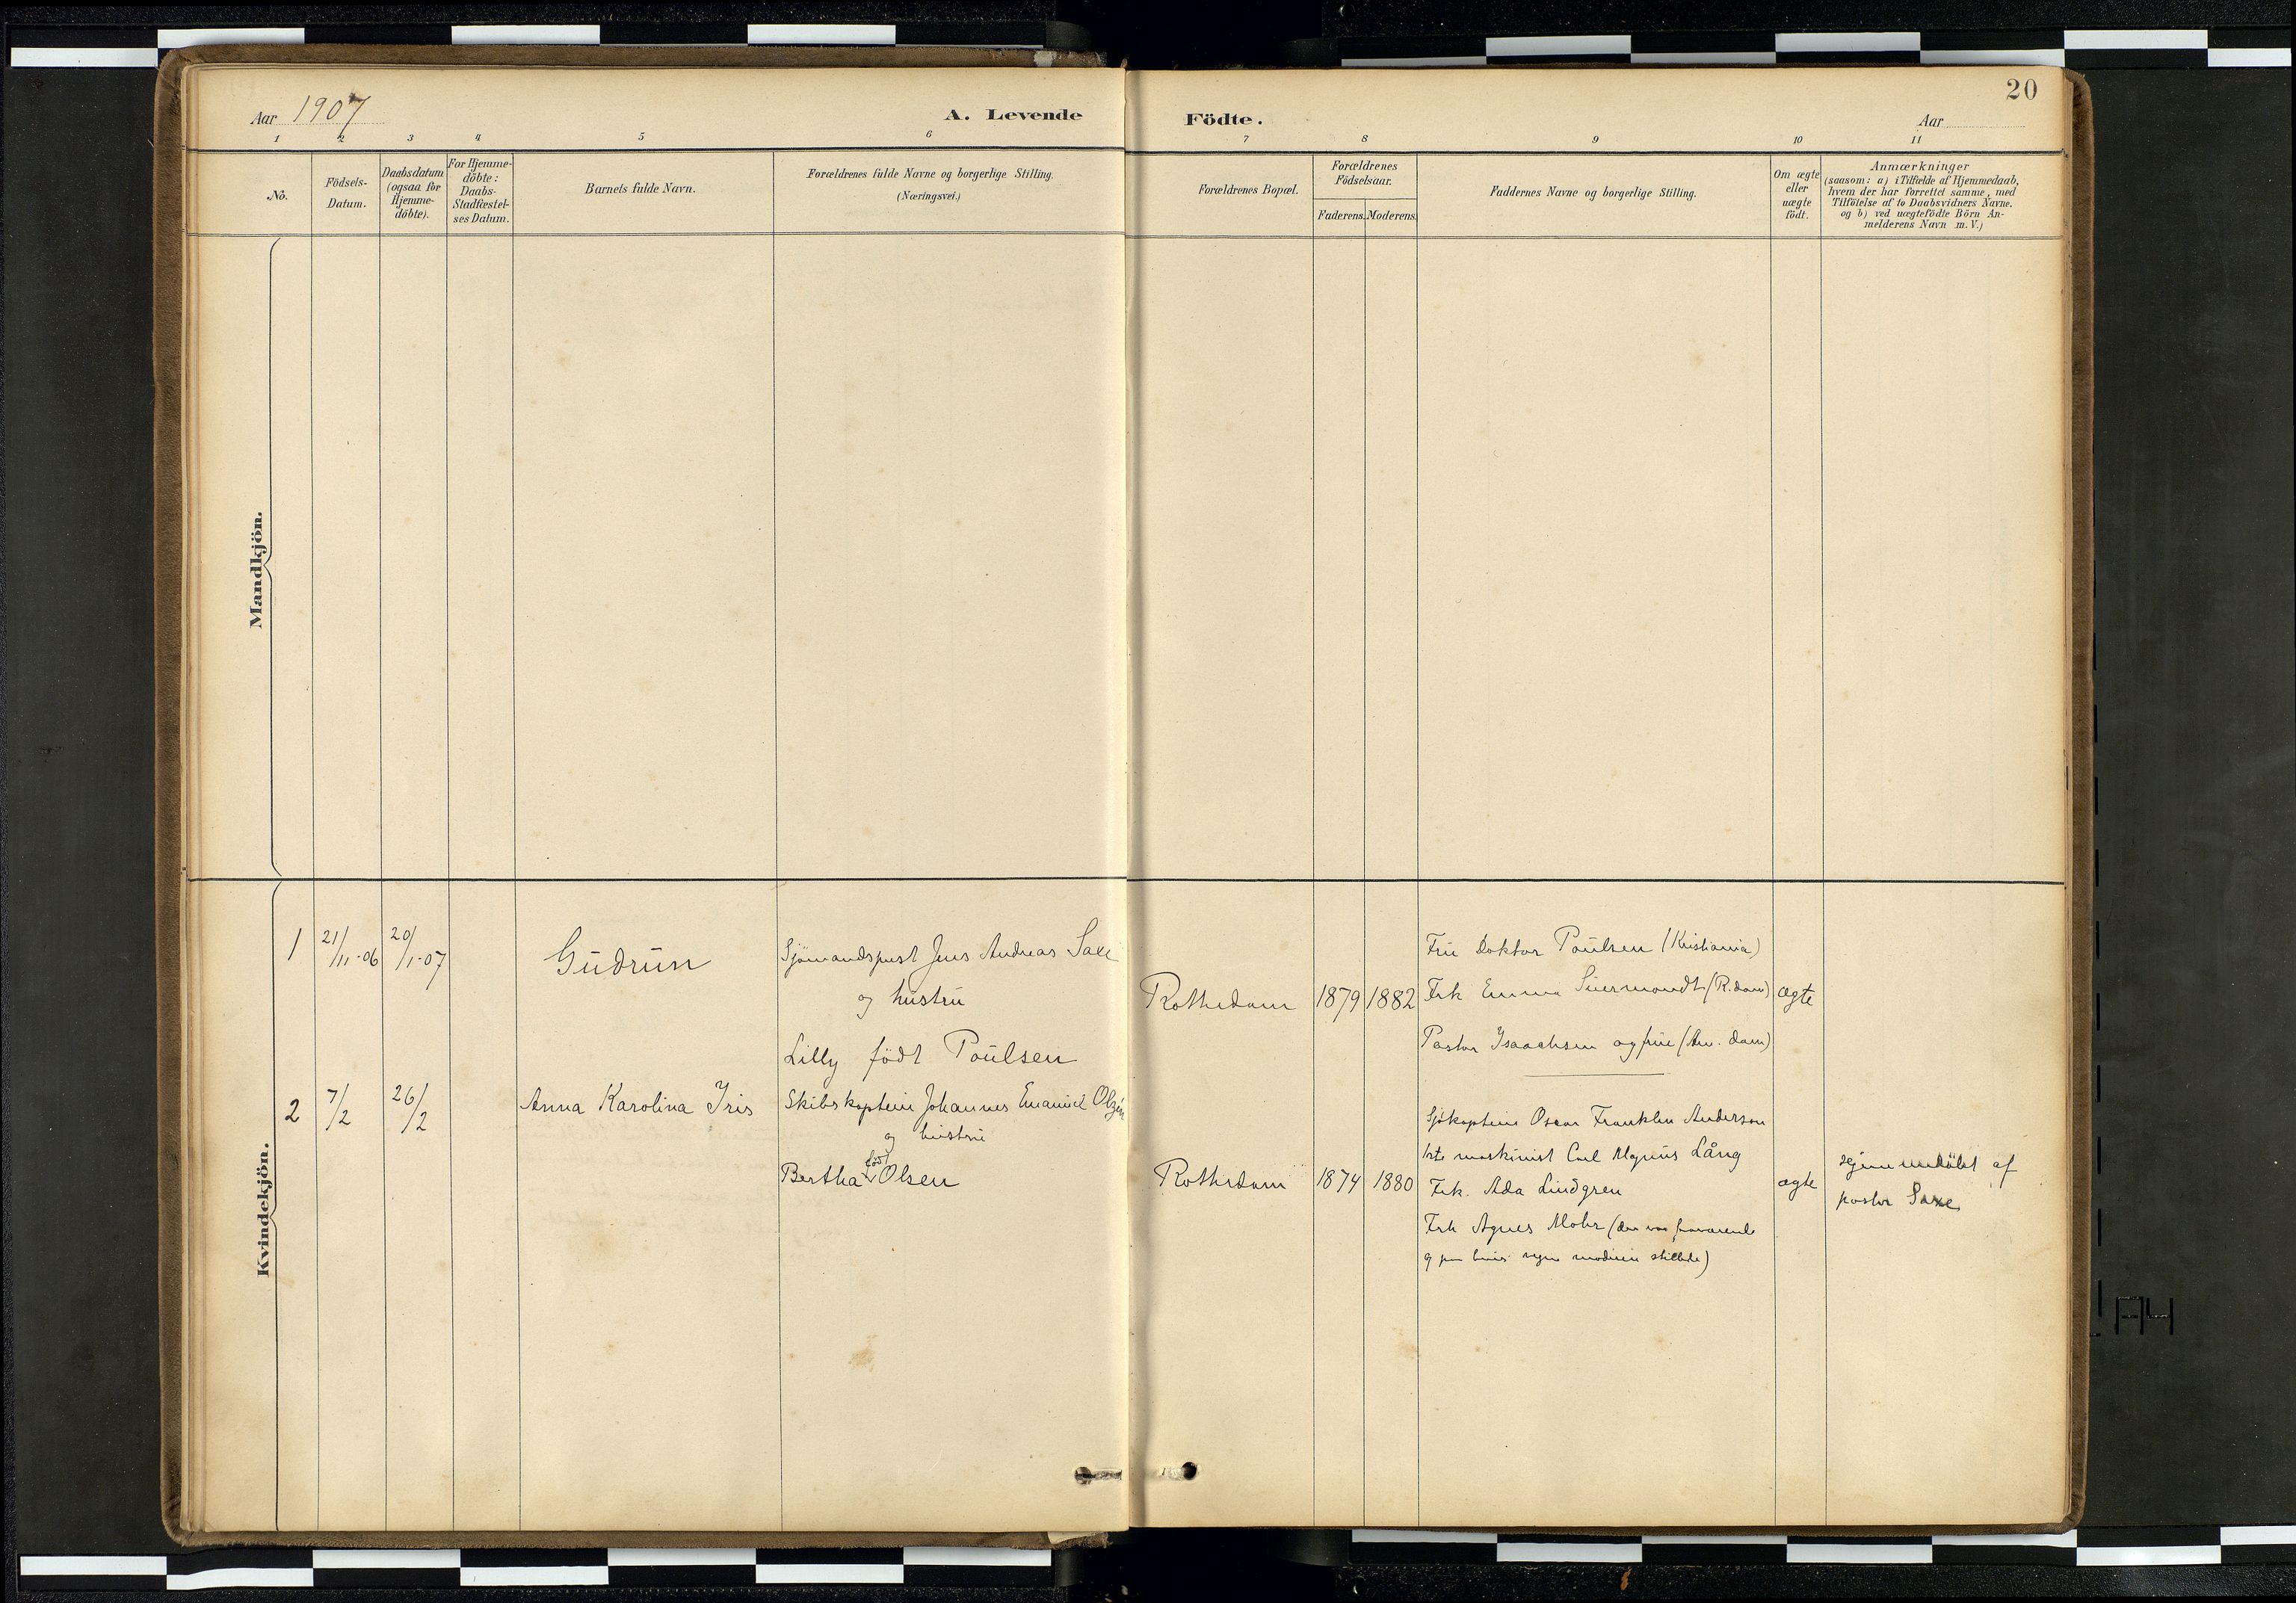 Aar 1907
A. Levende
Födte.
Aar
20
1 2 3 4 5 6 7 8 9 10 11
No.
Födsels-
Datum.
Daabsdatum
(ogsaa for
Hjemme-
döbte).
For Hjemme-
döbte:
Daabs-
Stadfæstel-
ses Datum.
Barnets fulde Navn.
Forældrenes fulde Navne og borgerlige Stilling.
(Næringsvei.)
Forældrenes Bopæl.
Forældrenes
Födselsaar.
Faderens. Moderens.
Faddernes Navne og borgerlige Stilling.
Om ægte
eller
uægte
födt.
Anmærkninger
(saasom: a) i Tilfælde af Hjemmedaab,
hvem der har forrettet samme, med
Tilföielse af to Daabsvidners Navne.
og b) ved uægtefödte Börn An-
melderens Navn m. V.)
Mandkjön.
Kvindekjön.
1
21/11-06
20/1-07
Gudrun
Sjömandsprest Jens Andreas Saxe
og hustru
Lilly födt Poulsen
Rotterdam
1879
1882
Fru Doktor Poulsen (Kristiania)
Frk Emma Suermondt (R.dam)
Pastor Isaachsen og frue (Am.dam)
ægte
2
7/2
26/2
Anna Karolina Iris
Skibskaptein Johannes Emanuel Olzén
og hustru
Bertha födt Olsen
Rotterdam
1874
1880
Sjökaptein Oscar Franklin Anderson
1ste maskinist Carl Magnus Lång
Frk. Ada Lindgren
Frk Agnes Mohr (den var fraværende
og paa hendes vegne moderen stillede)
ægte
Hjemmedöbt af
pastor Saxe